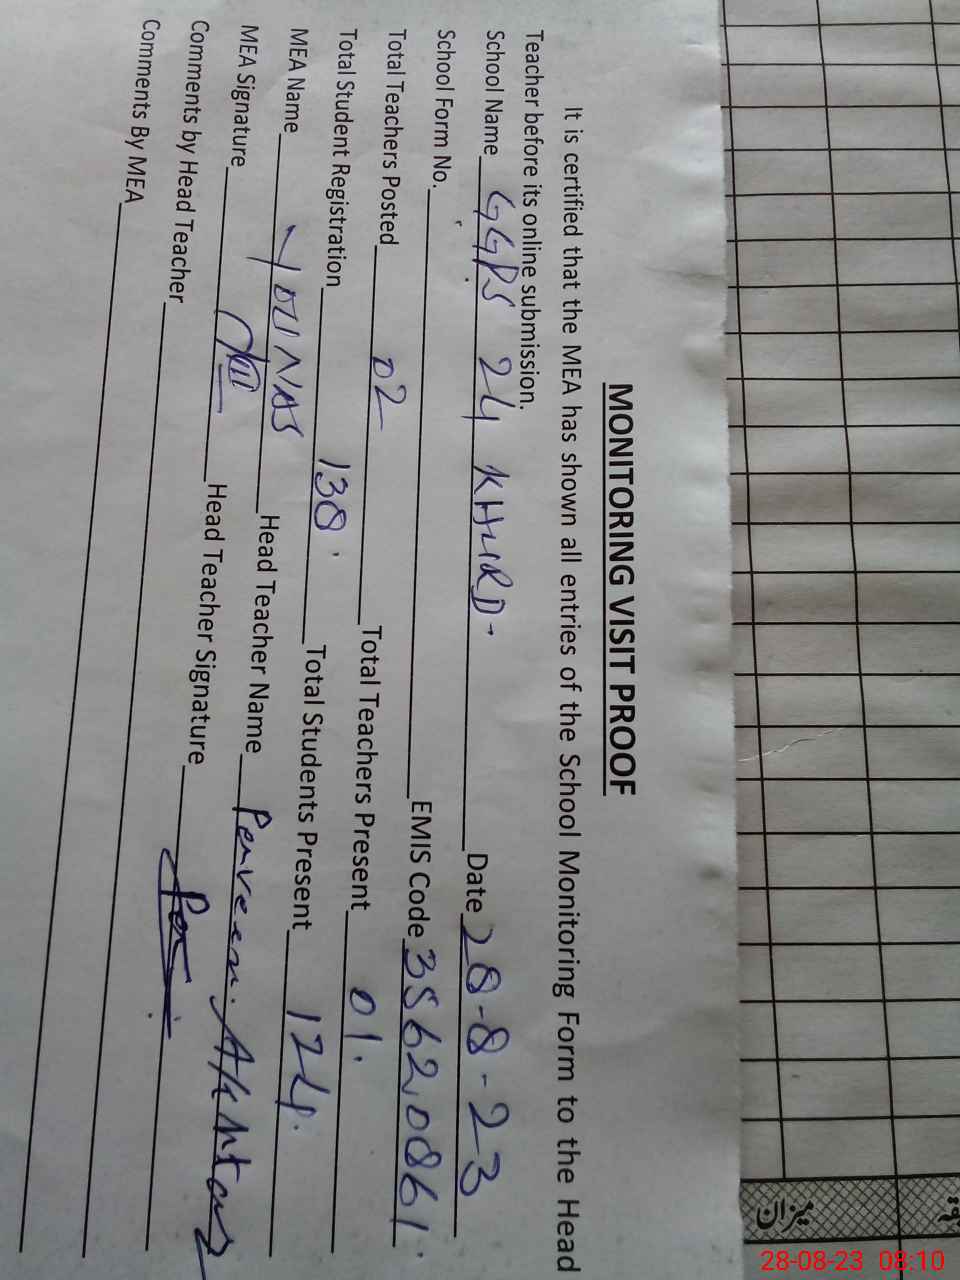 MONITORING VISIT PROOF
It is certified that the MEA has shown all entries of the School Monitoring Form to the Head
Teacher before its online submission.
School Name GGPS 24 KHURD Date 28-8-23
School Form No. EMIS Code 35620861
Total Teachers Posted 02 Total Teachers Present 01
Total Student Registration 138 Total Students Present 124
MEA Name YOUNAS Head Teacher Name Perveen Akhtar
MEA Signature Head Teacher Signature
Comments by Head Teacher
Comments By MEA
میزان
28-08-23 08:10